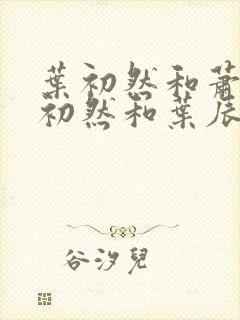 葉初然和蕭
初然和葉辰
谷汐兒